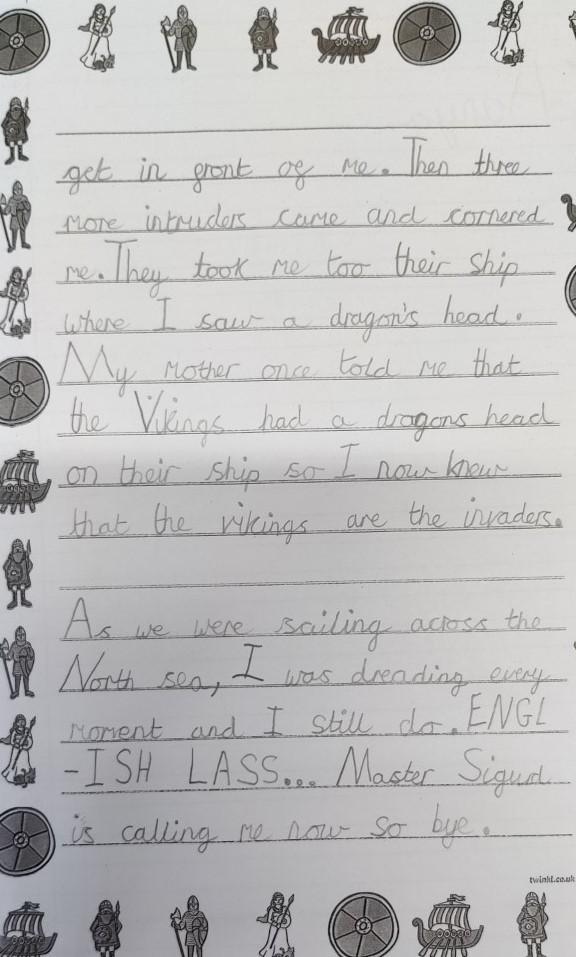 get in gront og me. Then three
more intruders came and cornered
me. They took me too their ship
where I saw a dragon's head.
My mother once told me that
the Vikings had a dragons head
on their ship so I now know
that the vikings are the invaders.
As we were sailing across the
North sea, I was dreading every
moment and I still do. ENGL
-ISH LASS... Master Sigurd
is calling me now so bye.
twinkl.co.uk